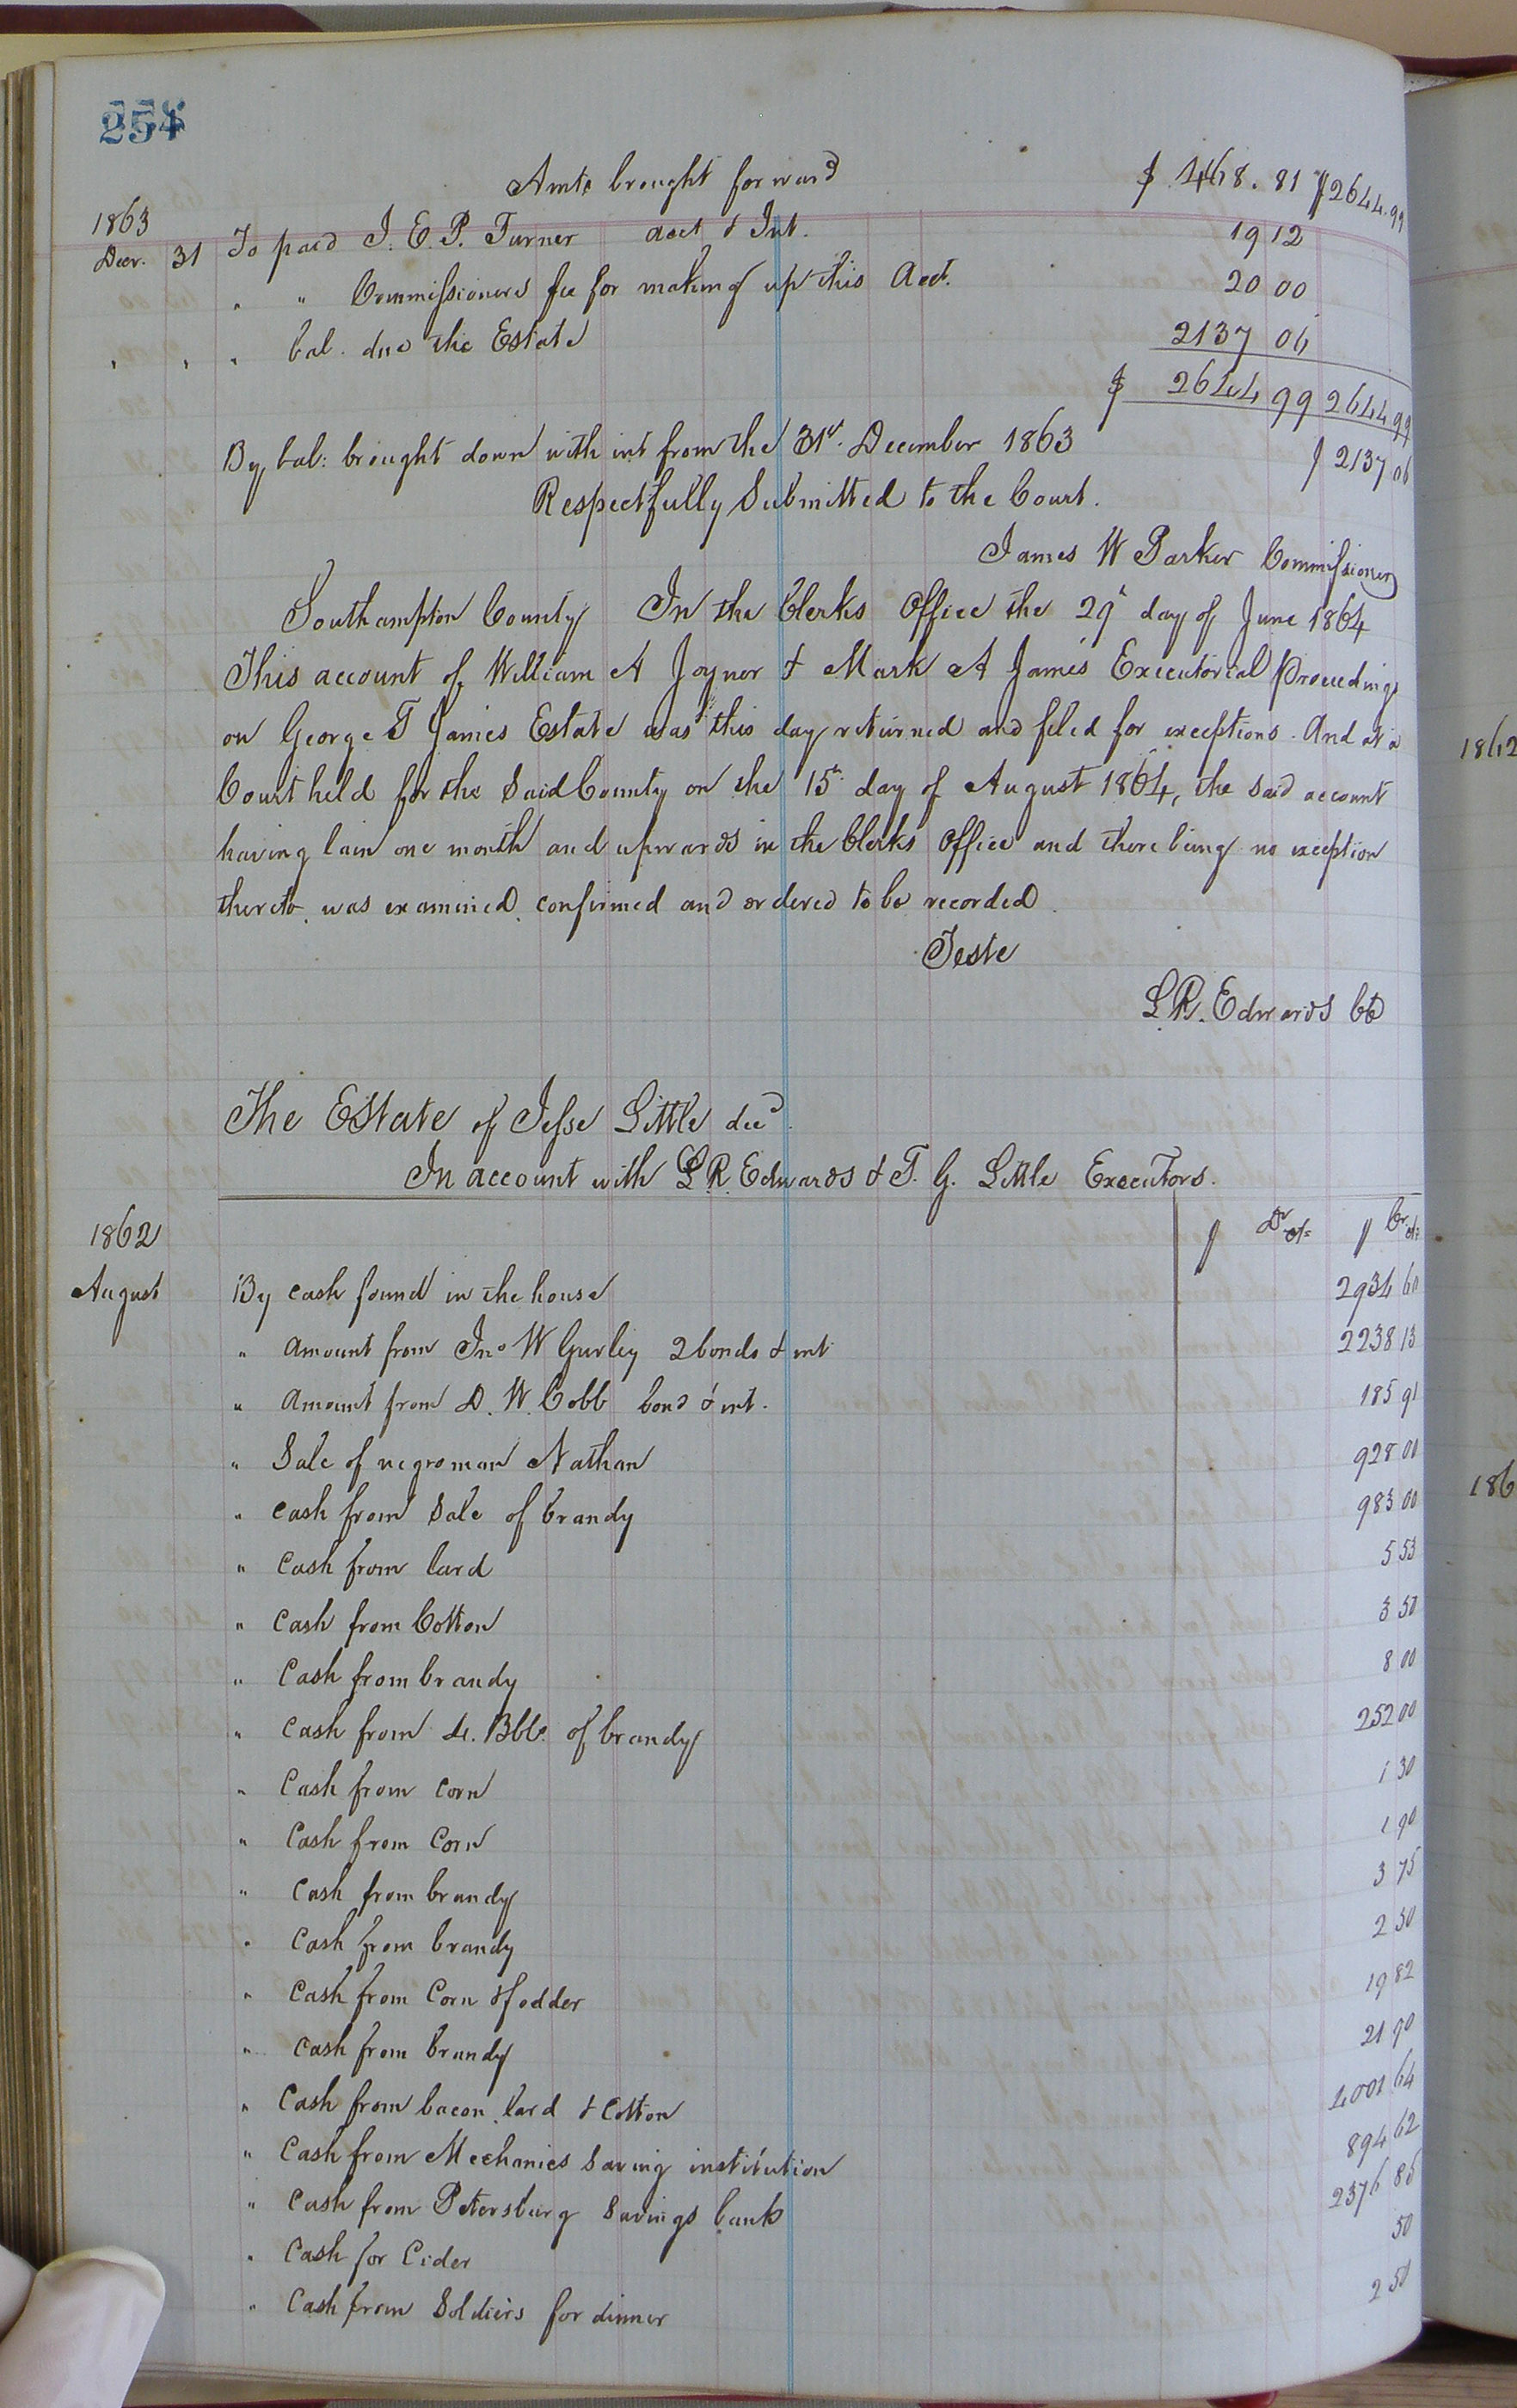 254
Amts brought forward $ 468.81 $2644.99
1863
Decr. 31 To paid J. E. P. Turner acct & Int. 19 12
" " Commissioners fee for making up this Acct. 20 00
" " " bal. due the Estate 2137 06
$ 2644 99 2644 99
By bal: brought down with int from the 31st December 1863 $ 2137 06
Respectfully Submitted to the Court.
James W Parker Commissioner
Southampton County In the Clerks Office the 29th day of June 1864
This account of William A Joyner & Mark A James Executorial Proceedings
on George T James Estate was this day returned and filed for exceptions. And at a
Court held for the Said County on the 15th day of August 1864, the said account
having lain one month and upwards in the Clerks Office and there being no exception
thereto, was examined, confirmed and ordered to be recorded.
Teste
L.R. Edwards CC
The Estate of Jesse Little decd.
In account with L.R. Edwards & T. G. Little Executors.
$ Dr cts $ Cr cts
1862
August By cash found in the house 2934 60
" Amount from Jno W Gurley 2 bonds & int 2238 13
" Amount from D. W. Cobb bond & int. 185 91
" Sale of negro man Nathan 928 00
" Cash from Sale of brandy 983 00
" Cash from lard 5 53
" Cash from Cotton 3 50
" Cash from brandy 8 00
" Cash from 4. Bbls. of brandy 252 00
" Cash from corn 1 30
" Cash from Corn 1 90
" Cash from brandy 3 75
" Cash from brandy 2 50
" Cash from Corn & fodder 19 82
" Cash from brandy 21 90
" Cash from bacon, lard & Cotton 1001 64
" Cash from Mechanics Saving institution 894 62
" Cash from Petersburg Savings bank 2376 85
" Cash for Cider 50
" Cash from Soldiers for dinner 2 50
1862
186